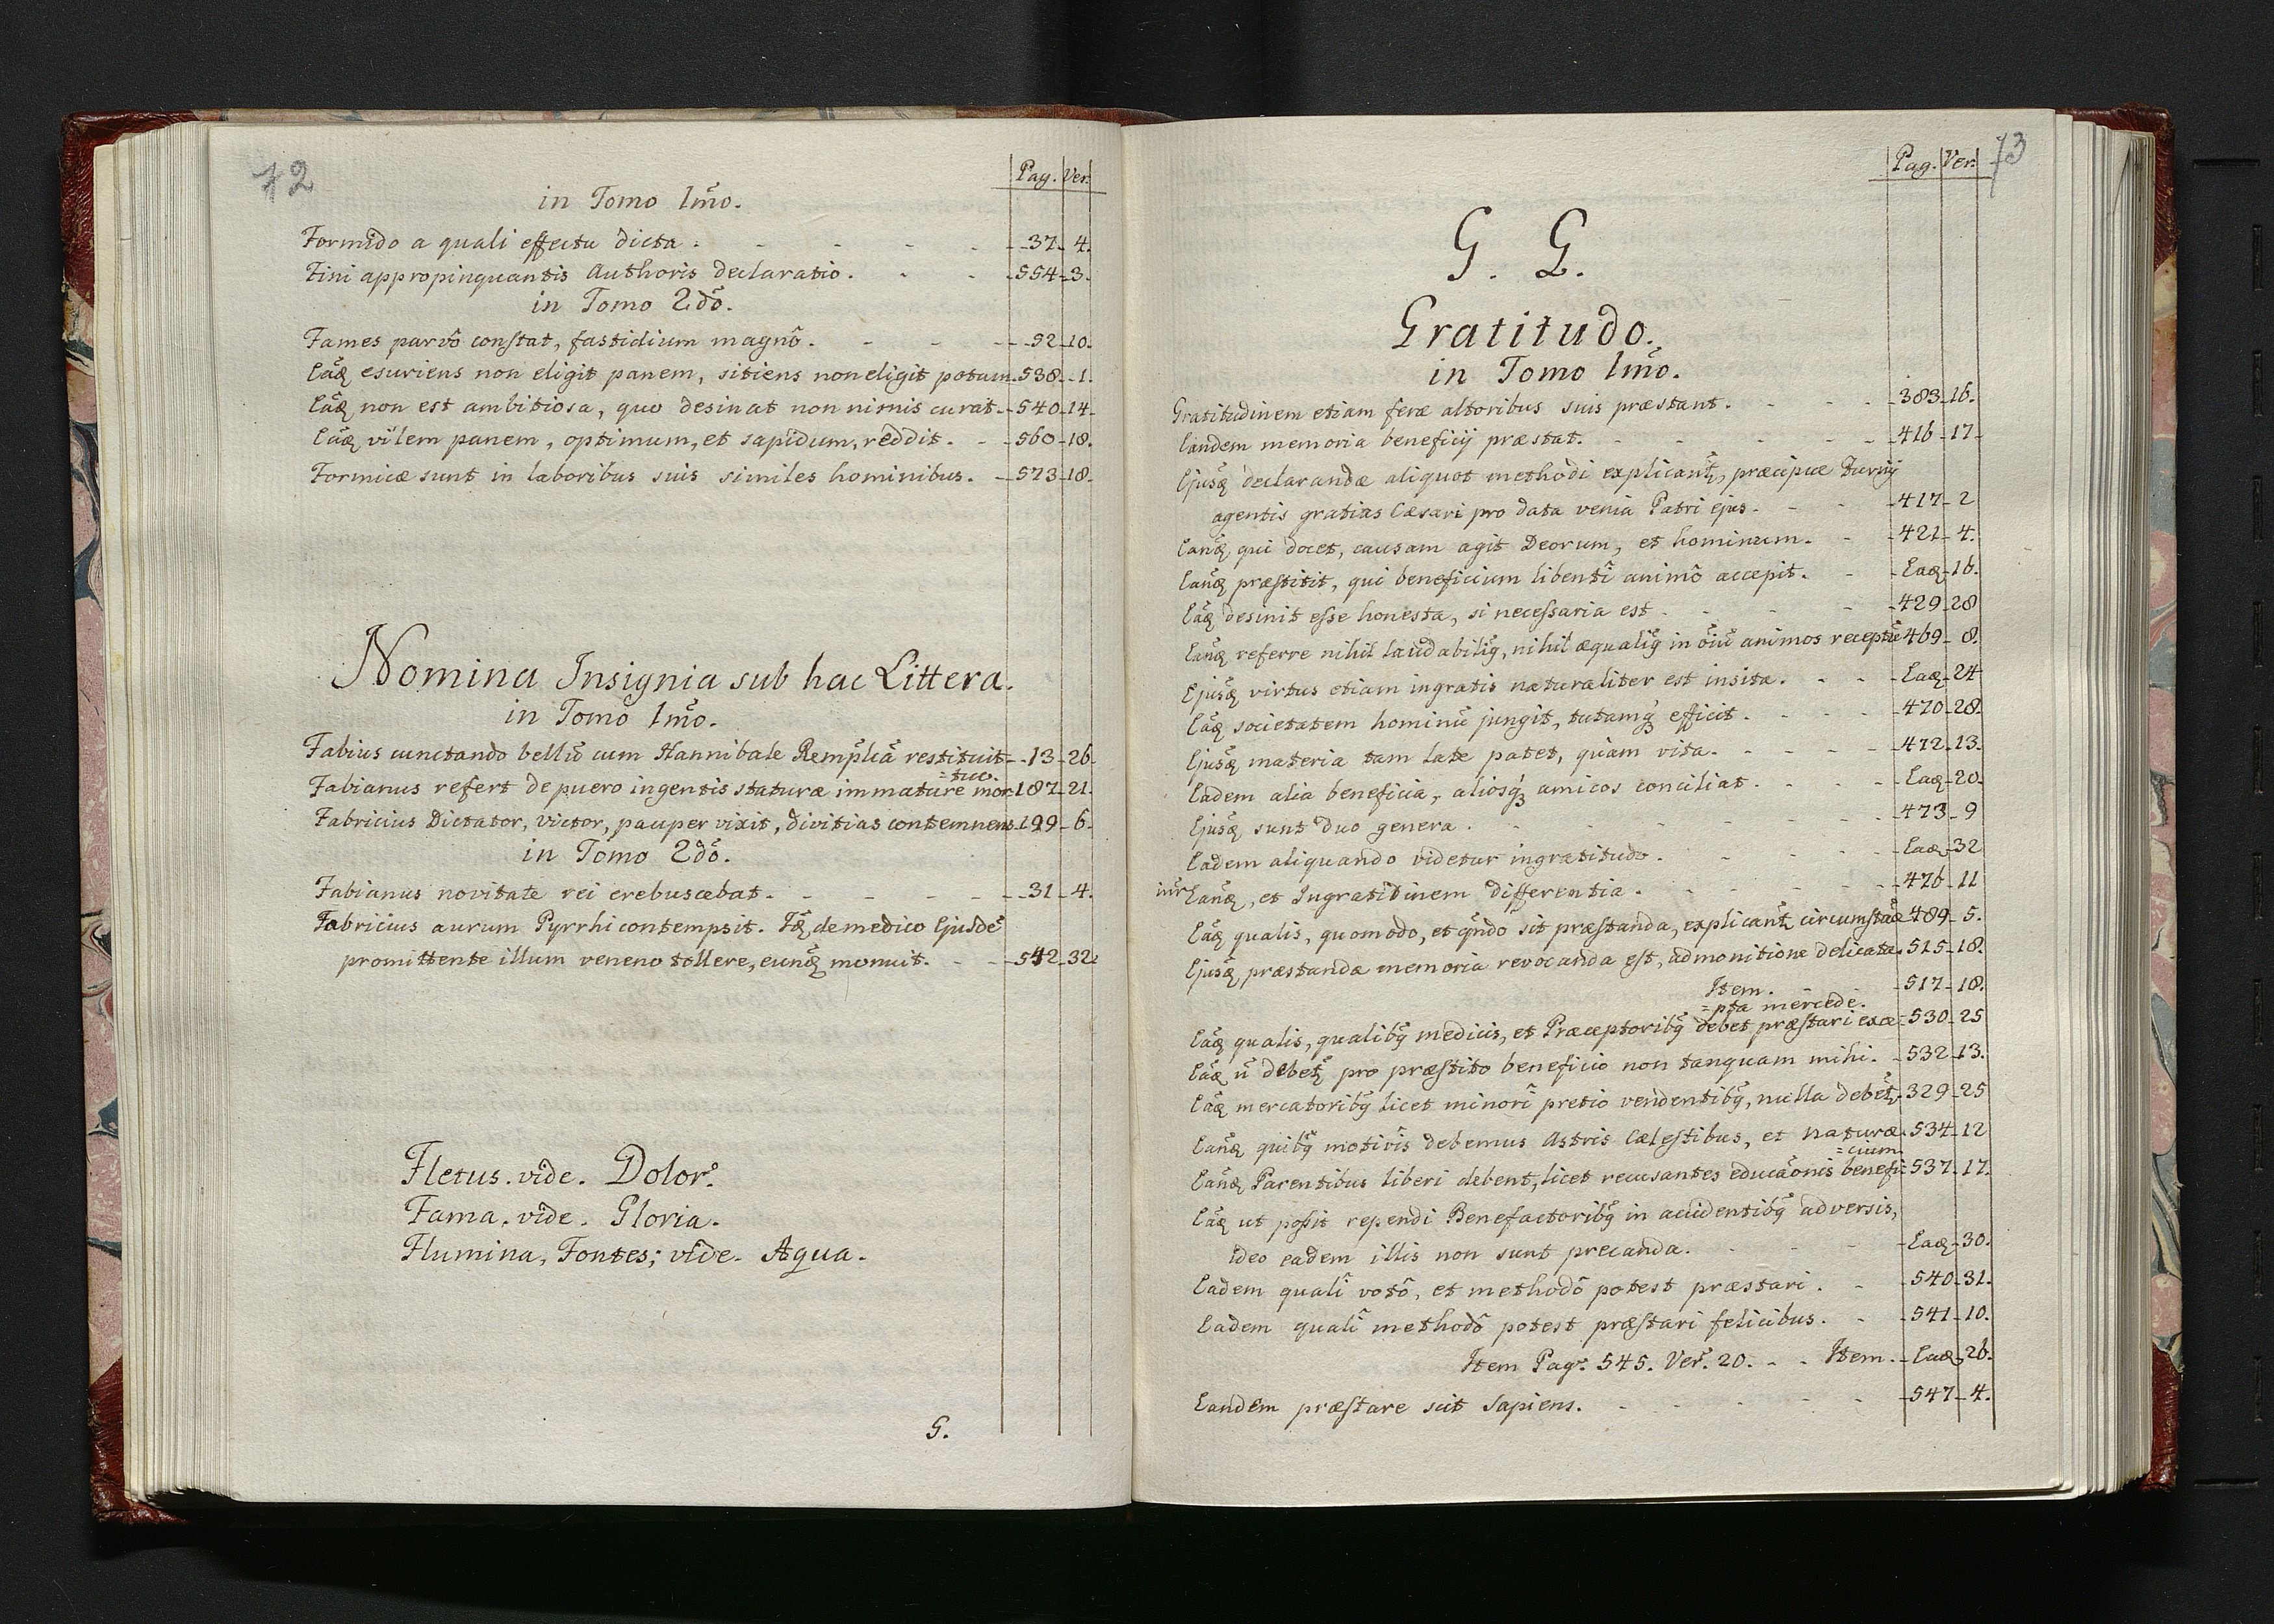 72
Pag. Ver.
in Tomo 1mo.
Formido a quali effectu dicta. 37. 4.
Fini appropinquantis Authoris declaratio. 554. 3.
in Tomo 2do.
Fames parvô constat, fastidium magnô. 52. 10.
esuriens non eligit panem, sitiens non eligit potum. 538. 1.
non est ambitiosa, quo desinat non nimis curat. 540. 14.
vilem panem, optimum, et sapidum, reddit. 560. 18.
Formicæ sunt in laboribus suis similes hominibus. 573. 18.
Nomina Insignia sub hac Littera.
in Tomo 1mo.
Fabius cunctando bellũ cum Hannibale Remplcã restituit 13. 26.
=tuo.
Fabianus refert de puero ingentis staturæ immature mor 187. 21.
Fabricius Dictator, victor, pauper vixit, divitias contemnens 199. 6.
in Tomo 2do.
Fabianus novitate rei erebuscebat. 31. 4.
Fabricius aurum Pyrrhi contempsit. de medico Ejusdẽ
promittente illum veneno tollere, monuit. 542. 32.
Fletus. vide. Dolor.
Fama. vide. Gloria.
Flumina, Fontes; vide. Aqua.
G.
73
Pag. Ver.
G. G.
Gratitudo.
in Tomo 1mo.
Gratitudinem etiam feræ altoribus suis præstant. 383. 16.
Eandem memoria beneficij præstat. 416. 17.
declarandæ aliquot methodi explicant, præcipue Furnij
agentis gratias Cæsari pro data venia Patri ejus. 417. 2
qui docet, causam agit Deorum, et hominum. 421. 4.
præstitit, qui beneficium libentî animô accepit. 16.
desinit esse honesta, si necessaria est. 429. 28
referre nihil laudabiliq, nihil æqualiq in oiũ animos receptũ 469. 8.
virtus etiam ingratis naturaliter est insita. 24
societatem hominũ jungit, tutamq efficit. 470. 28.
materia tam late patet, quàm vita. 472. 13.
Eadem alia beneficia, aliosq amicos conciliat. 20.
sunt duo genera. 473. 9
Eadem aliquando videtur ingratitudo. 32
et Ingratidinem differentia. 476. 11
qualis, quomodo, et qndo sit præstanda, explicant circumstaæ 489. 5.
præstandæ memoria revocanda est, admonitione delicata. 515. 18.
Item. 517. 18.
=pta mercede.
qualis, qualibq medicis, et Præceptoribq debet præstari exce= 530. 25
debet pro præstito beneficio non tanquam mihi. 532. 13.
mercatoribq licet minorî pretio vendentibq, nulla debet. 329. 25
quibq motivîs debemus Astris Cælestibus, et Naturæ. 534. 12
=cium.
Parentibus liberi debent, licet recusantes educãonis benefi= 537. 17.
ut possit rependi Benefactoribq in accidentibq adversis,
ideo eadem illis non sunt precanda. 30.
Eadem qualî votô, et methodô potest præstari. 540. 31.
Eadem qualî methodô potest præstari felicibus. 541. 10.
Item Pag. 545. Ver. 20. Item. 26.
Eandem præstare scit Sapiens. 547. 4.